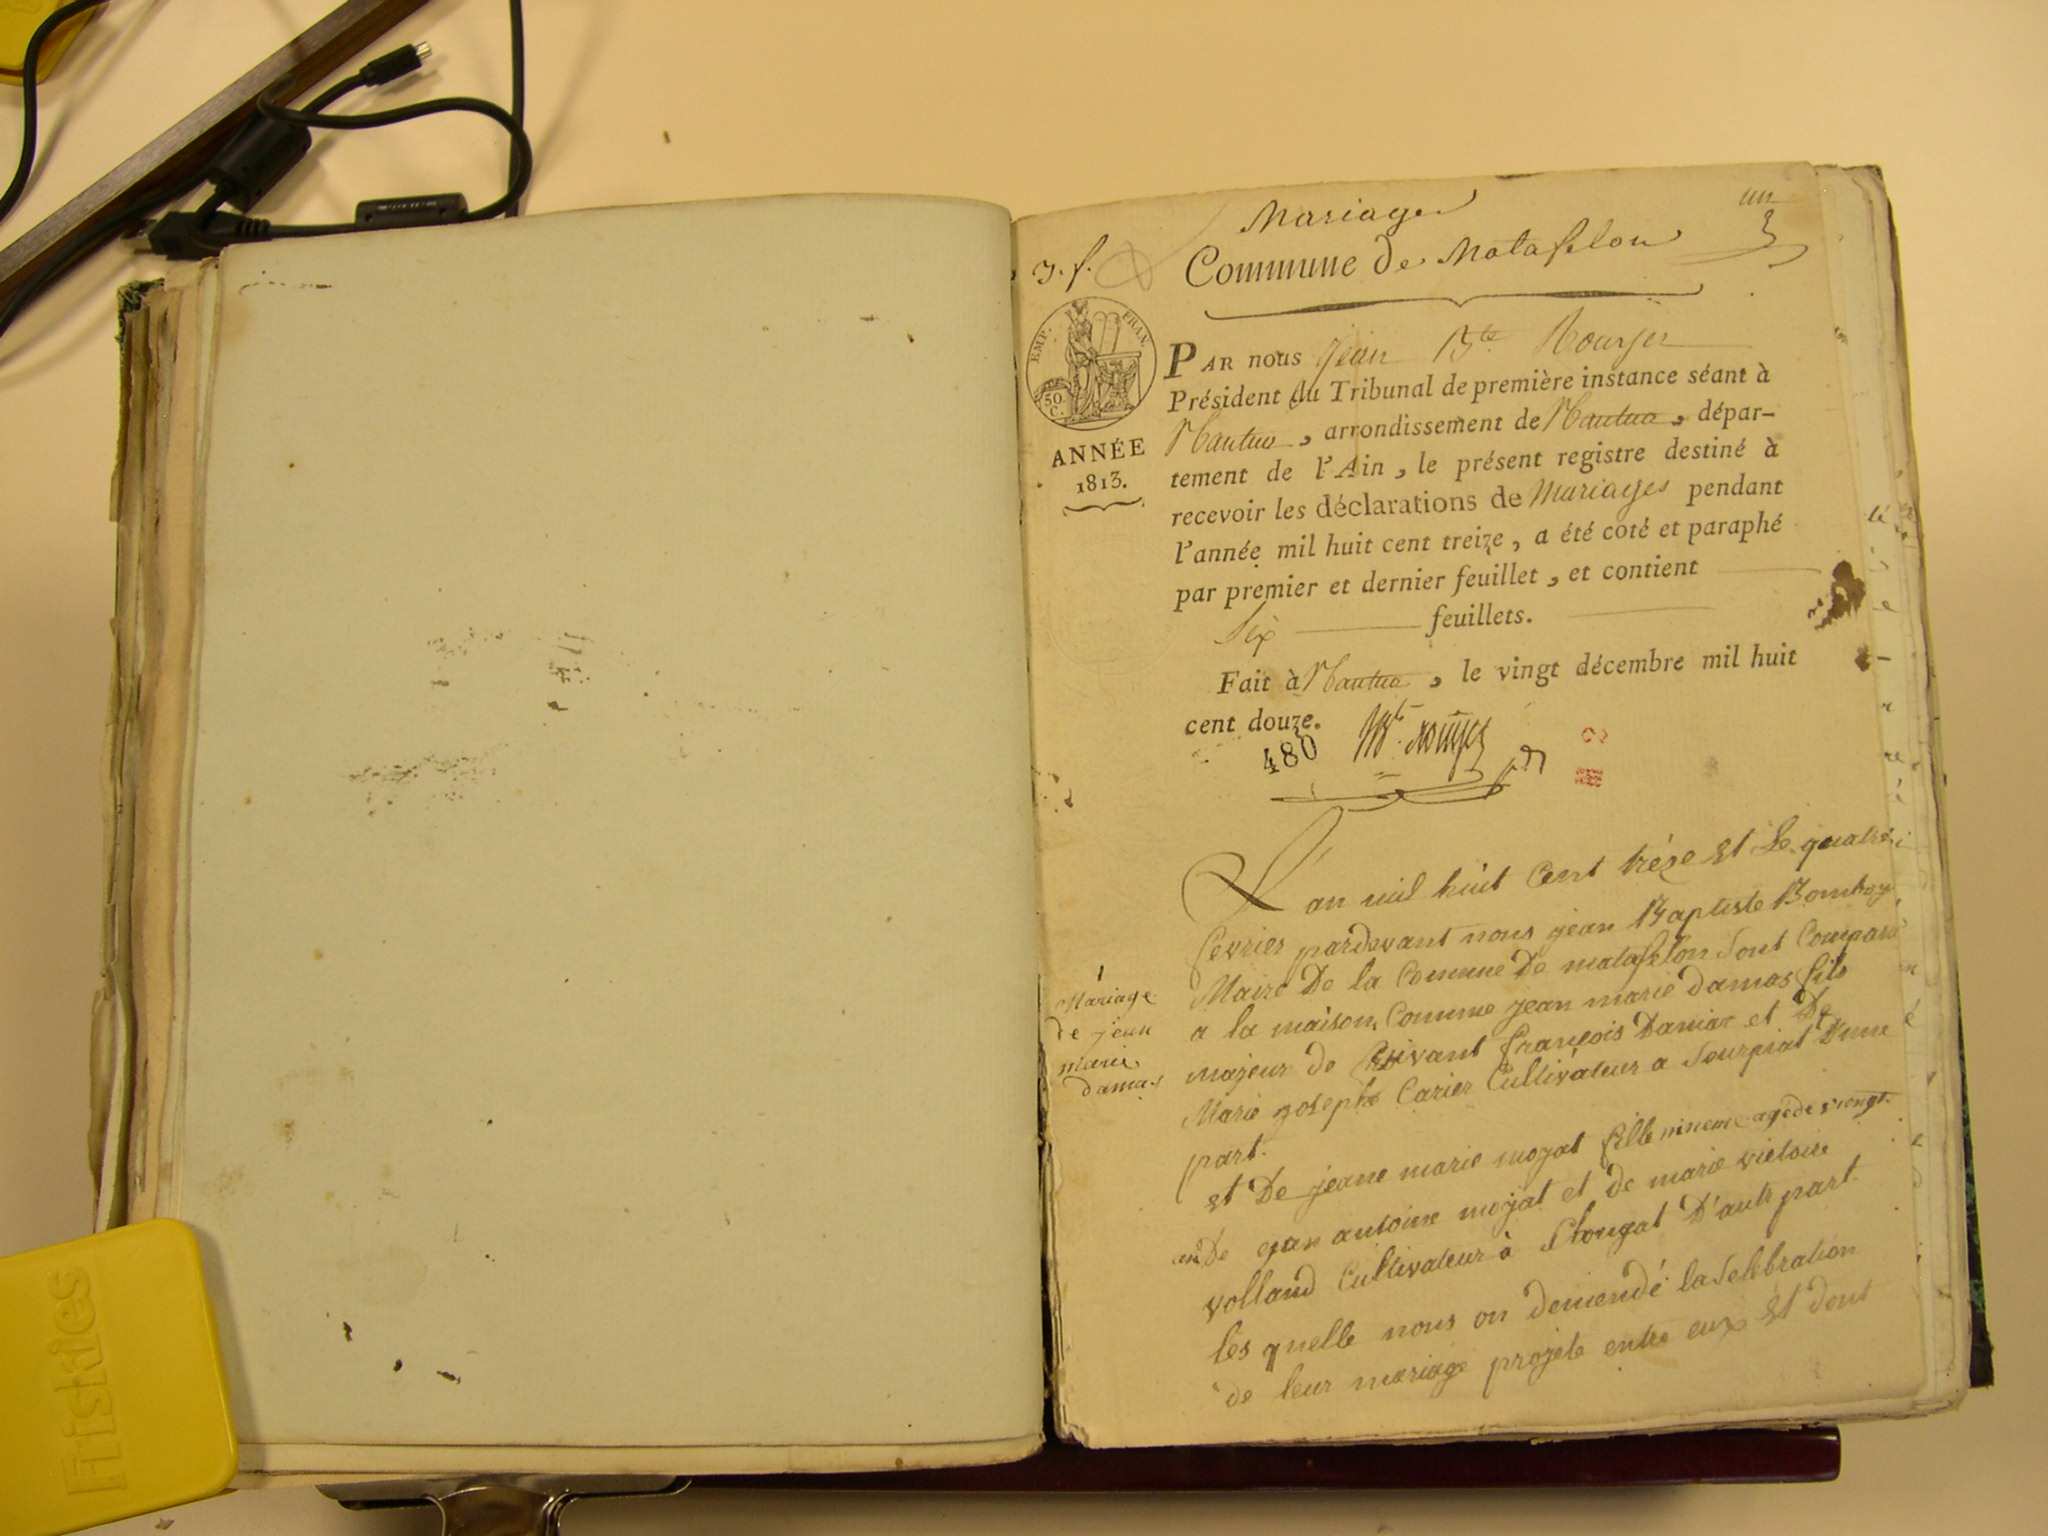 Mariages
un
Commune de Matafelon
EMP. FRAN.
50.
C.
ANNÉE
1813.
PAR nous Jean Bte Rouyer
Président du Tribunal de première instance séant à
Nantua, arrondissement de Nantua, dépar-
tement de l'Ain, le présent registre destiné à
recevoir les déclarations de Mariages pendant
l'année mil huit cent treize, a été coté et paraphé
par premier et dernier feuillet, et contient
Six feuillets.
Fait à Nantua, le vingt décembre mil huit
cent douze.
480
1
Mariage
de jean
marie
damas
L'an mil huit Cent trése et Le quatre
fevrier pardevant nous jean Baptiste
Maire De la Comune De matafelon Sont Compara
a la maison Comune jean marie damas fils
majeur de vivant françois Damas et De
Marie joseph Carier Cultivateur a Sourpiat D'une
part.
et De jeane marie mojat fille agéde vingt
De antoine mojat et de marie victoire
volland Cultivateur à D'autr part.
les quelle nous on demendé la Selebration
de leur mariage projete entre eux et dont
Friskies